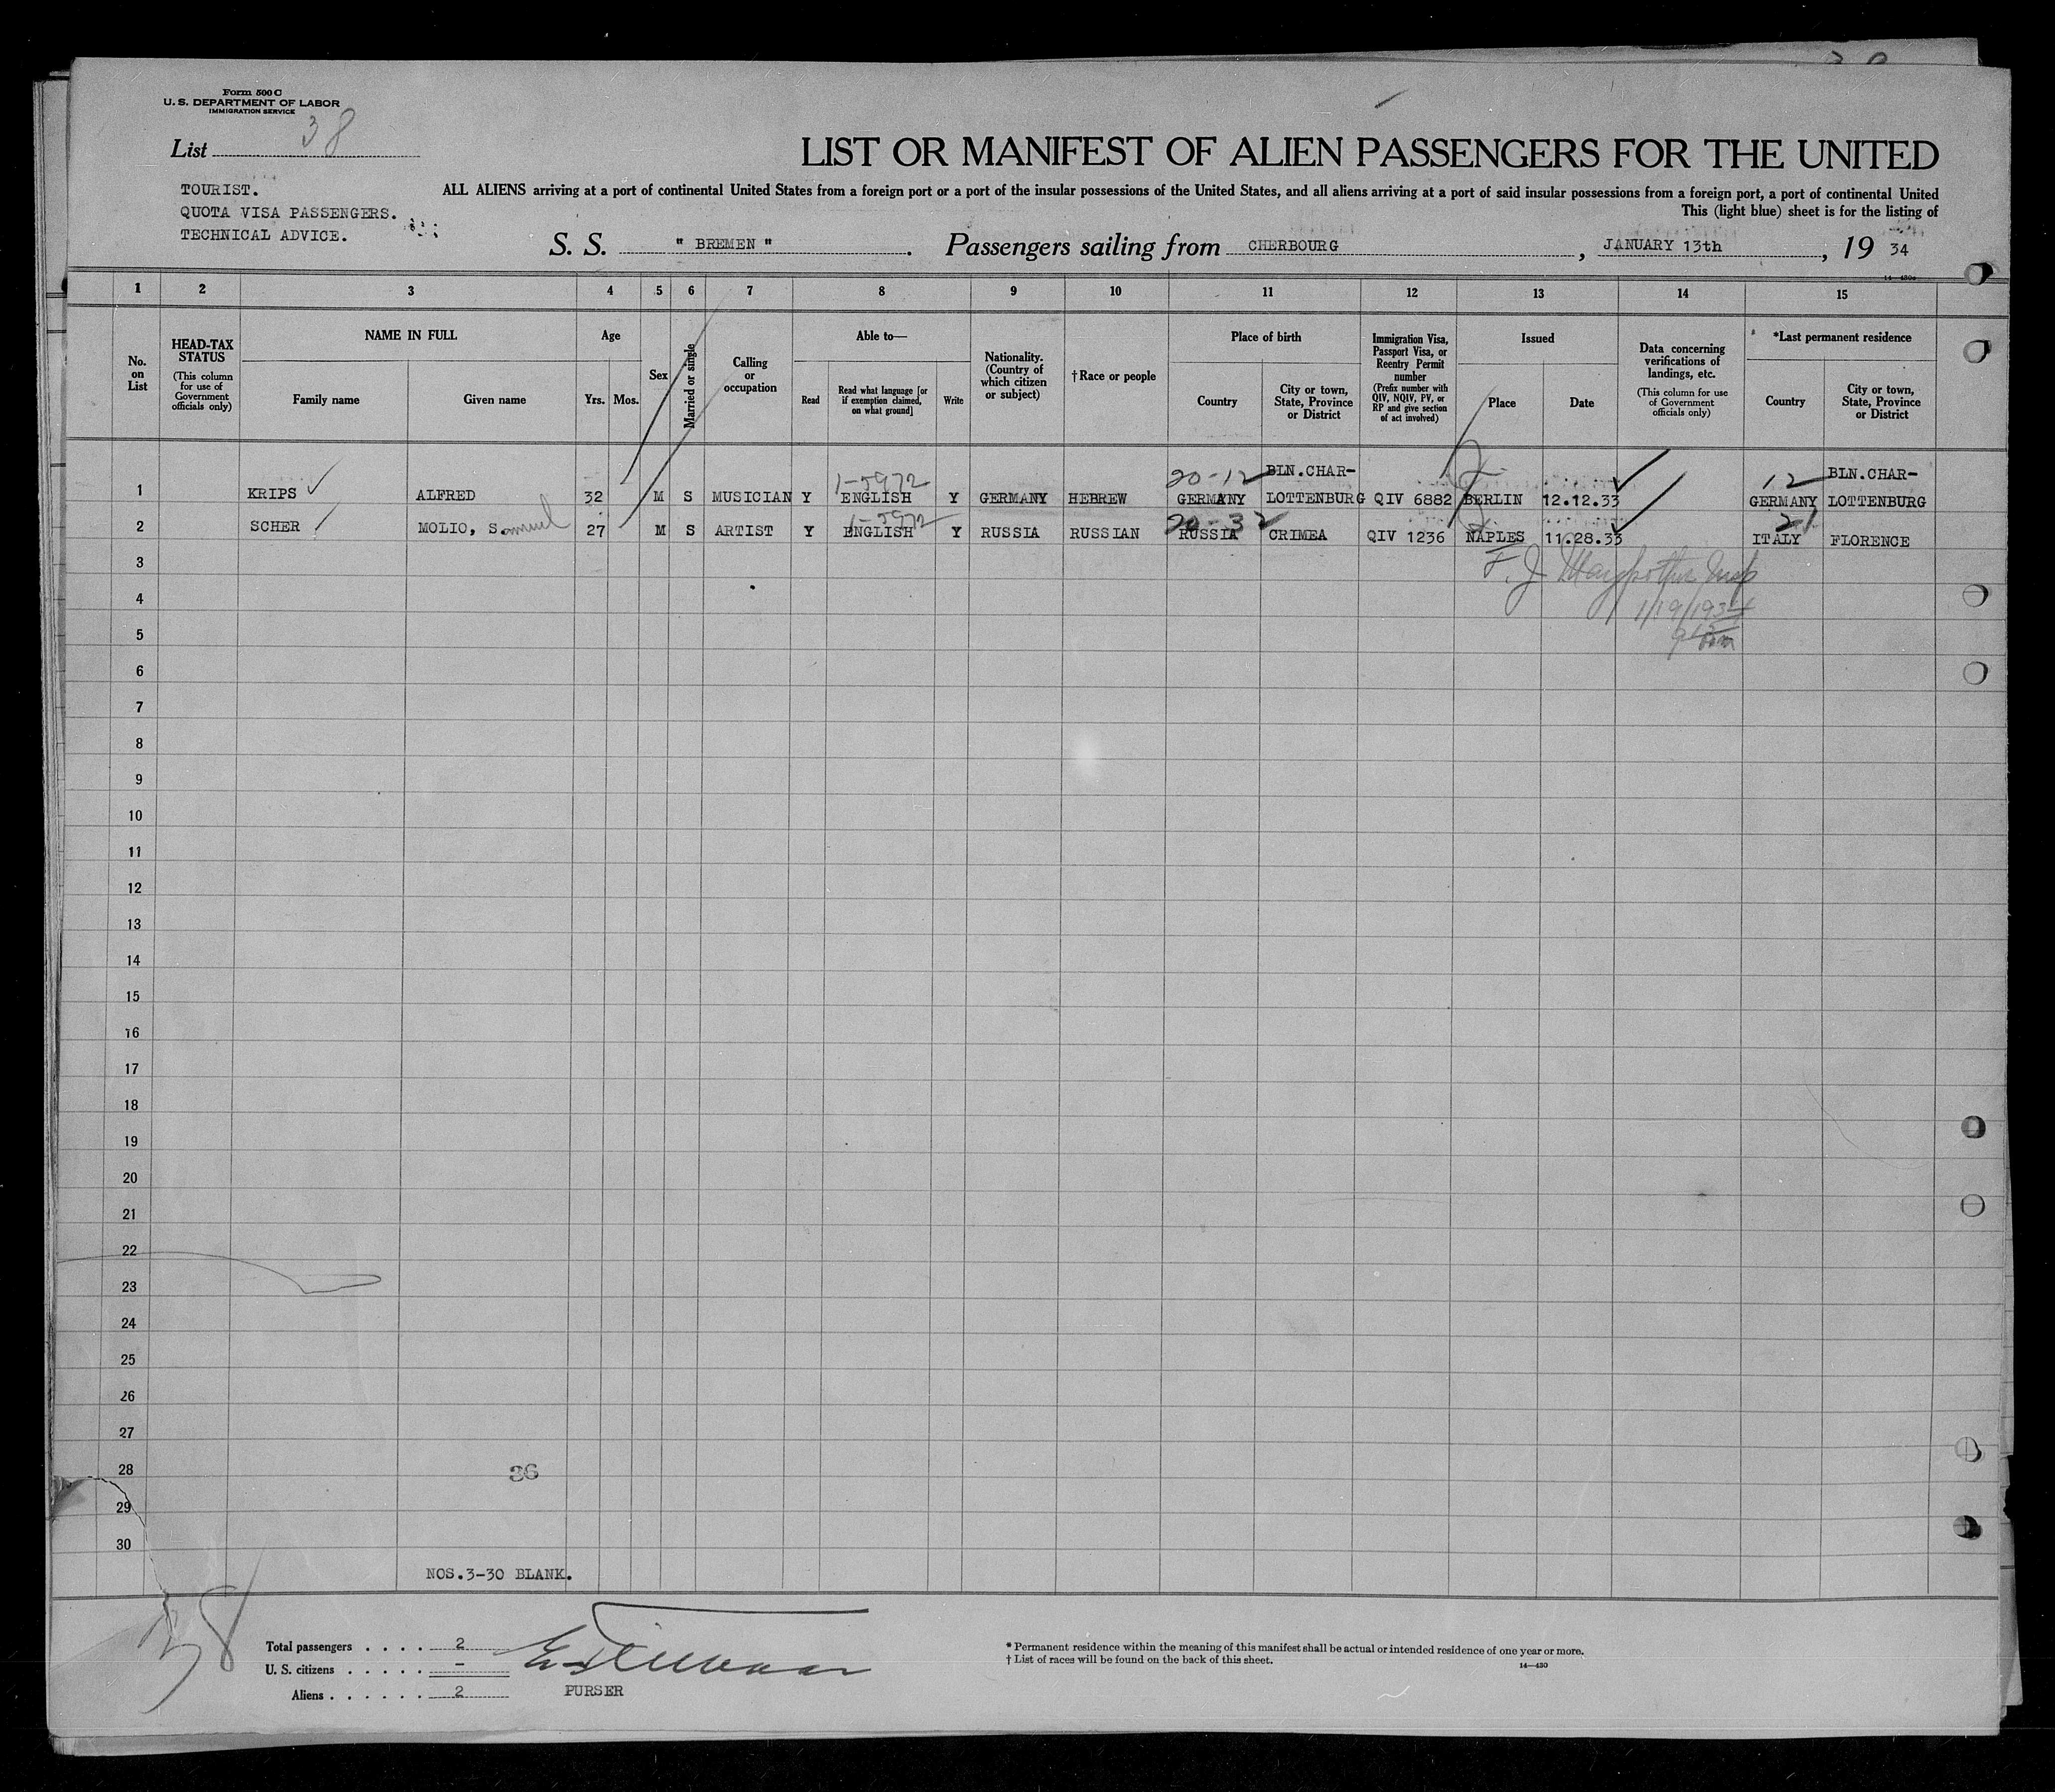 Form 500 C
U. S. DEPARTMENT OF LABOR
IMMIGRATION SERVICE
List 38
LIST OR MANIFEST OF ALIEN PASSENGERS FOR THE UNITED
TOURIST.
QUOTA VISA PASSENGERS.
TECHNICAL ADVICE.
ALL ALIENS arriving at a port of continental United States from a foreign port or a port of the insular possessions of the United States, and all aliens arriving at a port of said insular possessions from a foreign port, a port of continental United
This (light blue) sheet is for the listing of
S. S. " BREMEN ". Passengers sailing from CHERBOURG, JANUARY 13th, 19 34
1 2 3 4 5 6 7 8 9 10 11 12 13 14 15
No. on List
HEAD-TAX STATUS
(This column for use of Government officials only)
NAME IN FULL
Family name
Given name
Age
Yrs.
Mos.
Sex
Married or single
Calling or occupation
Able to—
Read
Read what language [or if exemption claimed, on what ground]
Write
Nationality. (Country of which citizen or subject)
†Race or people
Place of birth
Country
City or town, State, Province or District
Immigration Visa, Passport Visa, or Reentry Permit number
(Prefix number with QIV, NQIV, PV, or RP and give section of act involved)
Issued
Place
Date
Data concerning verifications of landings, etc.
(This column for use of Government officials only)
*Last permanent residence
Country
City or town, State, Province or District
1-5972 20-12 BLN.CHAR- 12 BLN.CHAR-
1 KRIPS ALFRED 32 M S MUSICIAN Y ENGLISH Y GERMANY HEBREW GERMANY LOTTENBURG QIV 6882 BERLIN 12.12.33 GERMANY LOTTENBURG
1-5972 20-32 21
2 SCHER MOLIO, Samuel 27 M S ARTIST Y ENGLISH Y RUSSIA RUSSIAN RUSSIA CRIMEA QIV 1236 NAPLES 11.28.33 ITALY FLORENCE
3
F. J.
4
1/19/1934
5
6
7
8
9
10
11
12
13
14
15
16
17
18
19
20
21
22
23
24
25
26
27
28
36
29
30
NOS.3-30 BLANK.
38
Total passengers . . . . 2
U. S. citizens . . . . . -
Aliens . . . . . . 2
PURSER
* Permanent residence within the meaning of this manifest shall be actual or intended residence of one year or more.
† List of races will be found on the back of this sheet.
14—430